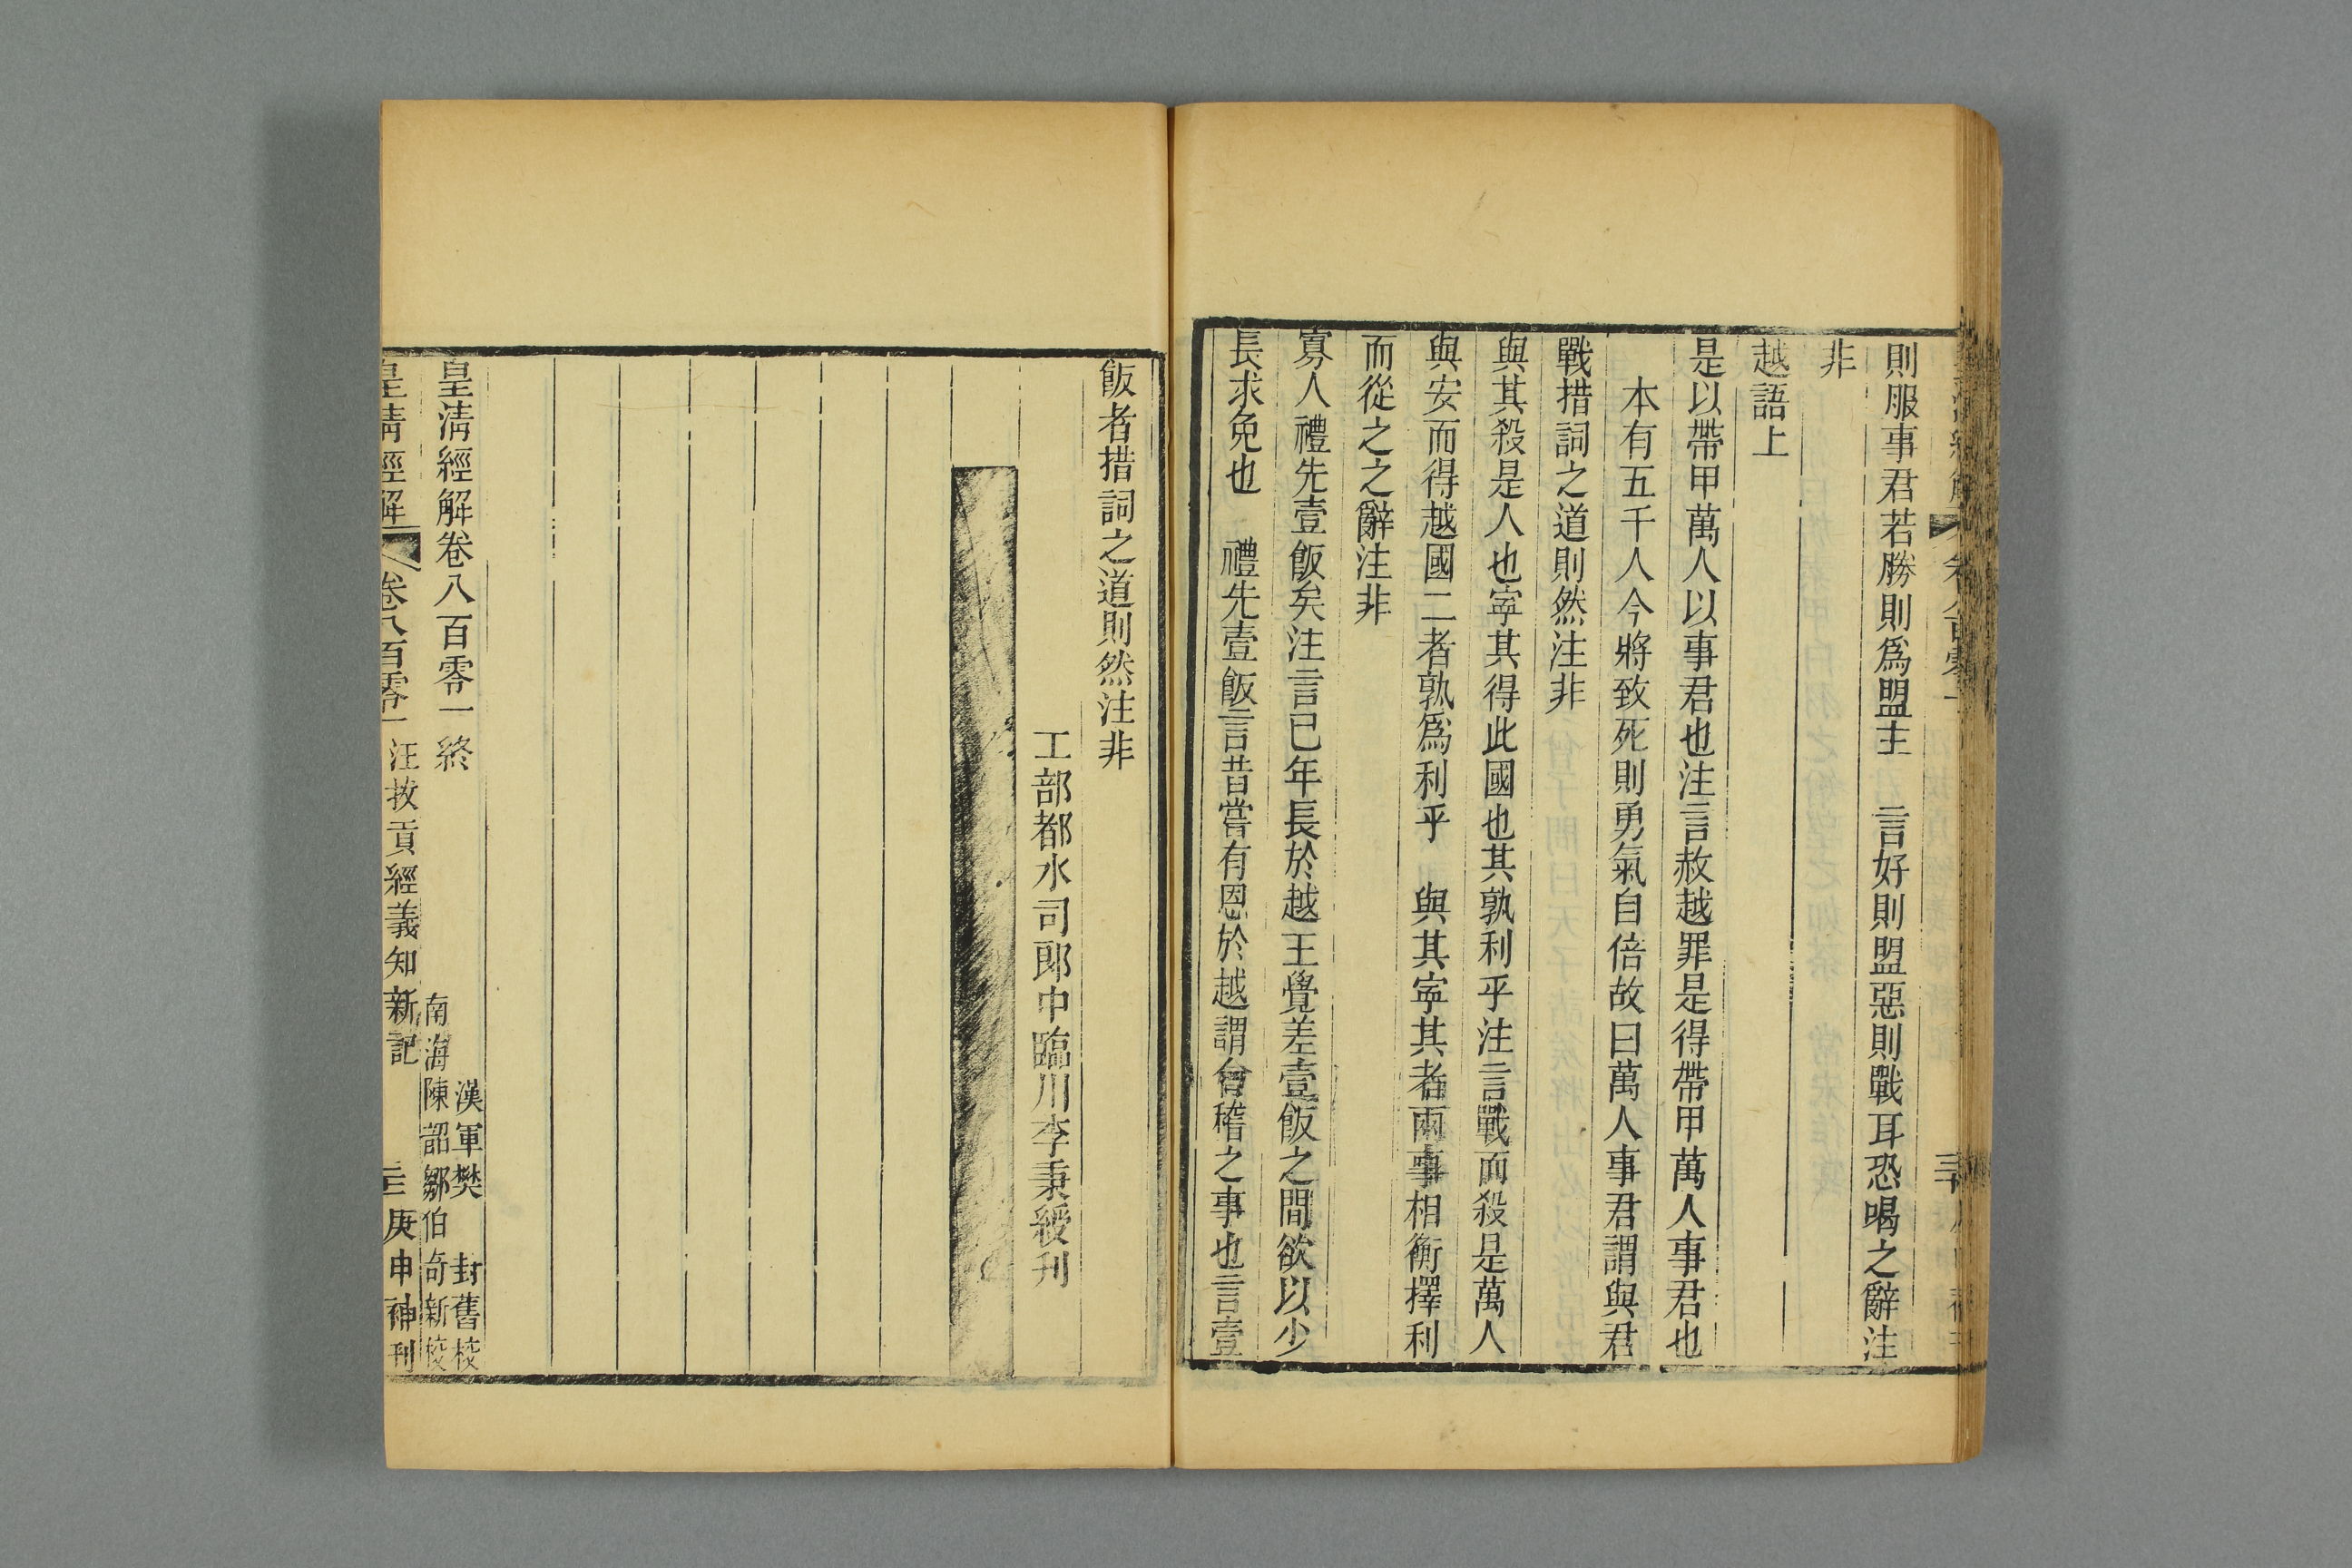 則服事君若勝則爲盟主　言好則盟惡則戰耳恐喝之辭注
非
越語上
是以帶甲萬人以事君也注言赦越罪是得帶甲萬人事君也
本有五千人今將致死則勇氣自倍故曰萬人事君謂與君
戰措詞之道則然注非
與其殺是人也寜其得此國也其孰利乎注言戰而殺是萬人
與安而得越國二者孰爲利乎　與其寜其者兩事相衡擇利
而從之之辭注非
寡人禮先壹飯矣注言已年長於越王覺差壹飯之間欲以少
長求免也　禮先壹飯言昔嘗有恩於越謂會稽之事也言壹
飯者措詞之道則然注非
工部都水司郎中臨川李秉綬刊
皇淸經解卷八百零一終
漢軍樊　封舊校
南海陳韶鄒伯奇新校
皇淸經解　卷八百零一　汪拔貢經義知新記　三　庚申補刊